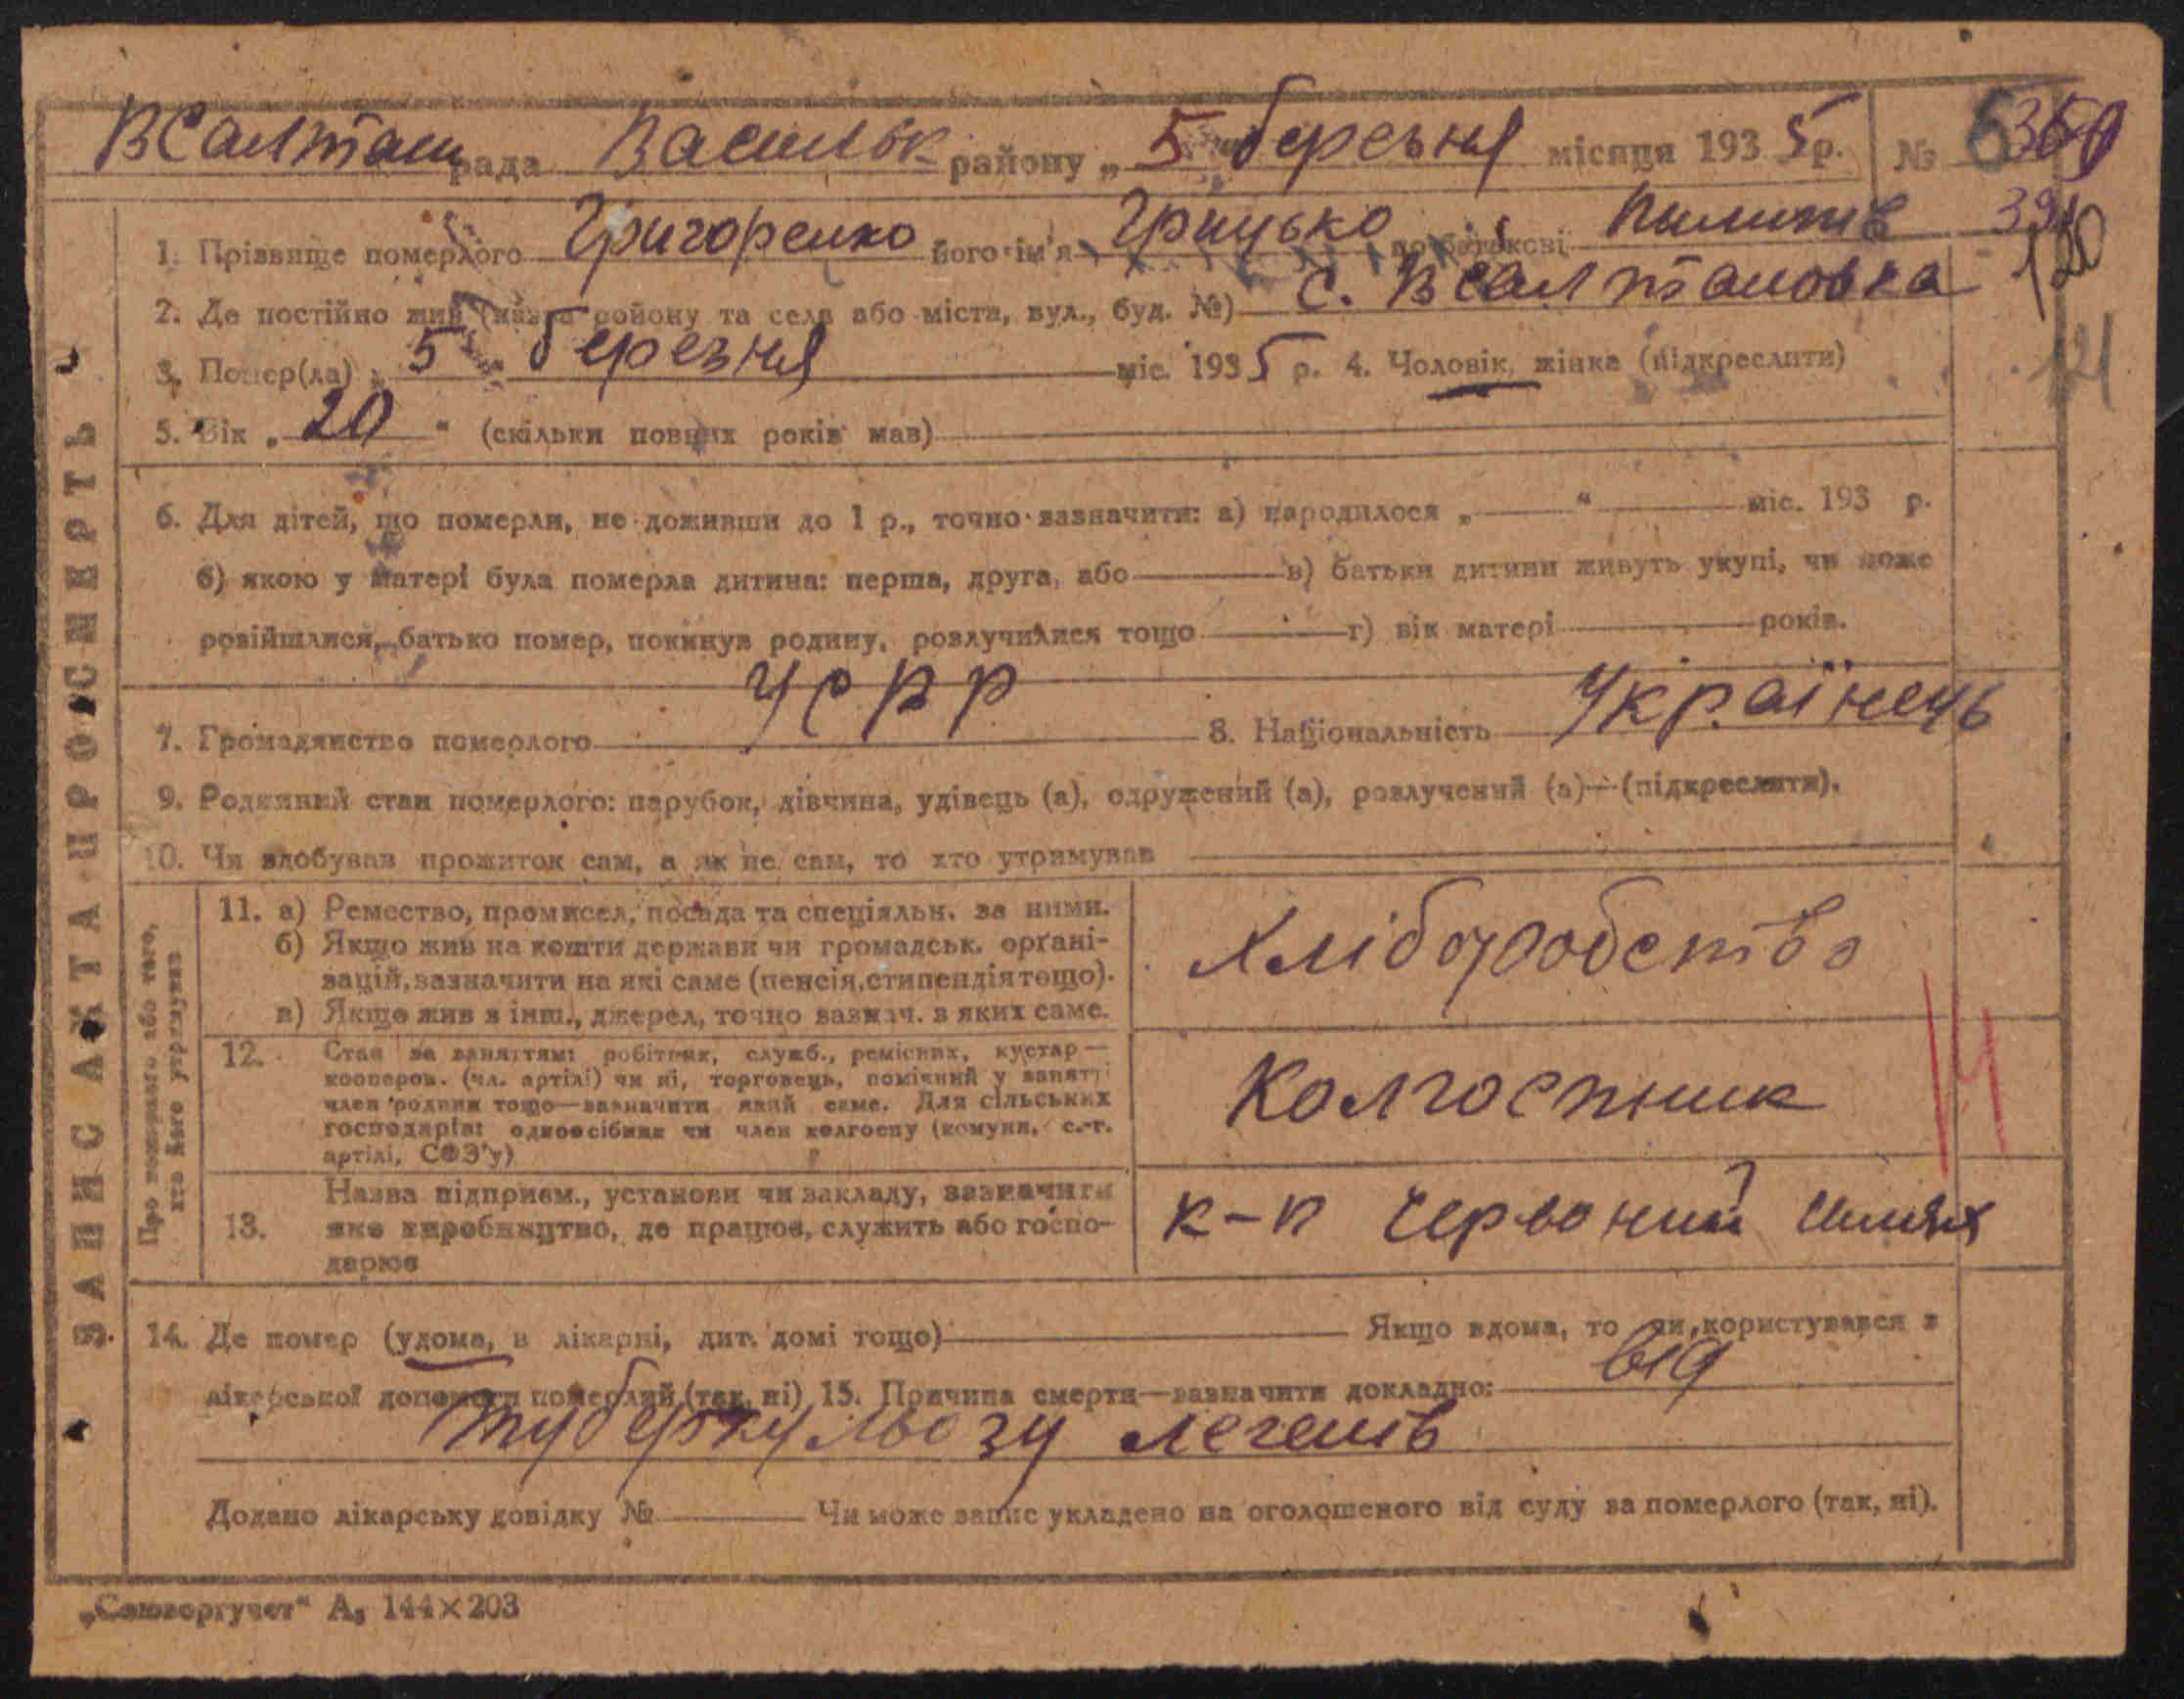 ВСалтан рада Васильк району „ 5 " березня місяця 193 5 р. № 6
1. Прізвище померлого Григоренко його ім'я Грицько по батькові Пилипів
2. Де постійно жив (назва району та села або міста, вул., буд. №) с. ВСалтановка
3. Помер(ла) „ 5 " березня міс. 193 5 р. 4. Чоловік, жінка (підкреслити)
120
121
5. Вік „ 20 " (скільки повних років мав)
6. Для дітей, що померли, не доживши до 1 р., точно зазначити: а) народилося „ " міс. 193 р.
б) якою у матері була померла дитина: перша, друга, або в) батьки дитини живуть укупі, чи може
розійшлися, батько помер, покинув родину, розлучилися тощо г) вік матері років.
7. Громадянство померлого УСРР 8. Національність Українець
9. Родинний стан померлого: парубок, дівчина, удівець (а), одружений (а), розлучений (а) — (підкреслити).
10. Чи здобував прожиток сам, а як не сам, то хто утримував
Про померлого або того,
хто його утримував
11. а) Ремество, промисел, посада та спеціяльн. за ними.
б) Якщо жив на кошти держави чи громадськ. орґані-
зацій, зазначити на які саме (пенсія, стипендія тощо).
в) Якщо жив з інш., джерел, точно зазнач. з яких саме.
Хліборобство
12. Стан за заняттям: робітник, служб., ремісник, кустар —
кооперов. (чл. артілі) чи ні, торговець, помічний у занятті
член родини тощо — зазначити який саме. Для сільських
господарів: одноосібник чи член колгоспу (комуни, с.-г.
артілі, СОЗ'у)
Колгоспник
13. Назва підприєм., установи чи закладу, зазначити
яке виробництво, де працює, служить або госпо-
дарює
к-п Червоний шлях
14. Де помер (удома, в лікарні, дит. домі тощо) Якщо вдома, то чи користувався з
лікарської допомоги померлий (так, ні) 15. Причина смерти — зазначити докладно: від
туберкульозу легенів
Додано лікарську довідку № Чи може запис укладено на оголошеного від суду за померлого (так, ні).
ЗАПИС АКТА ПРО СМЕРТЬ
А₅ 144×203